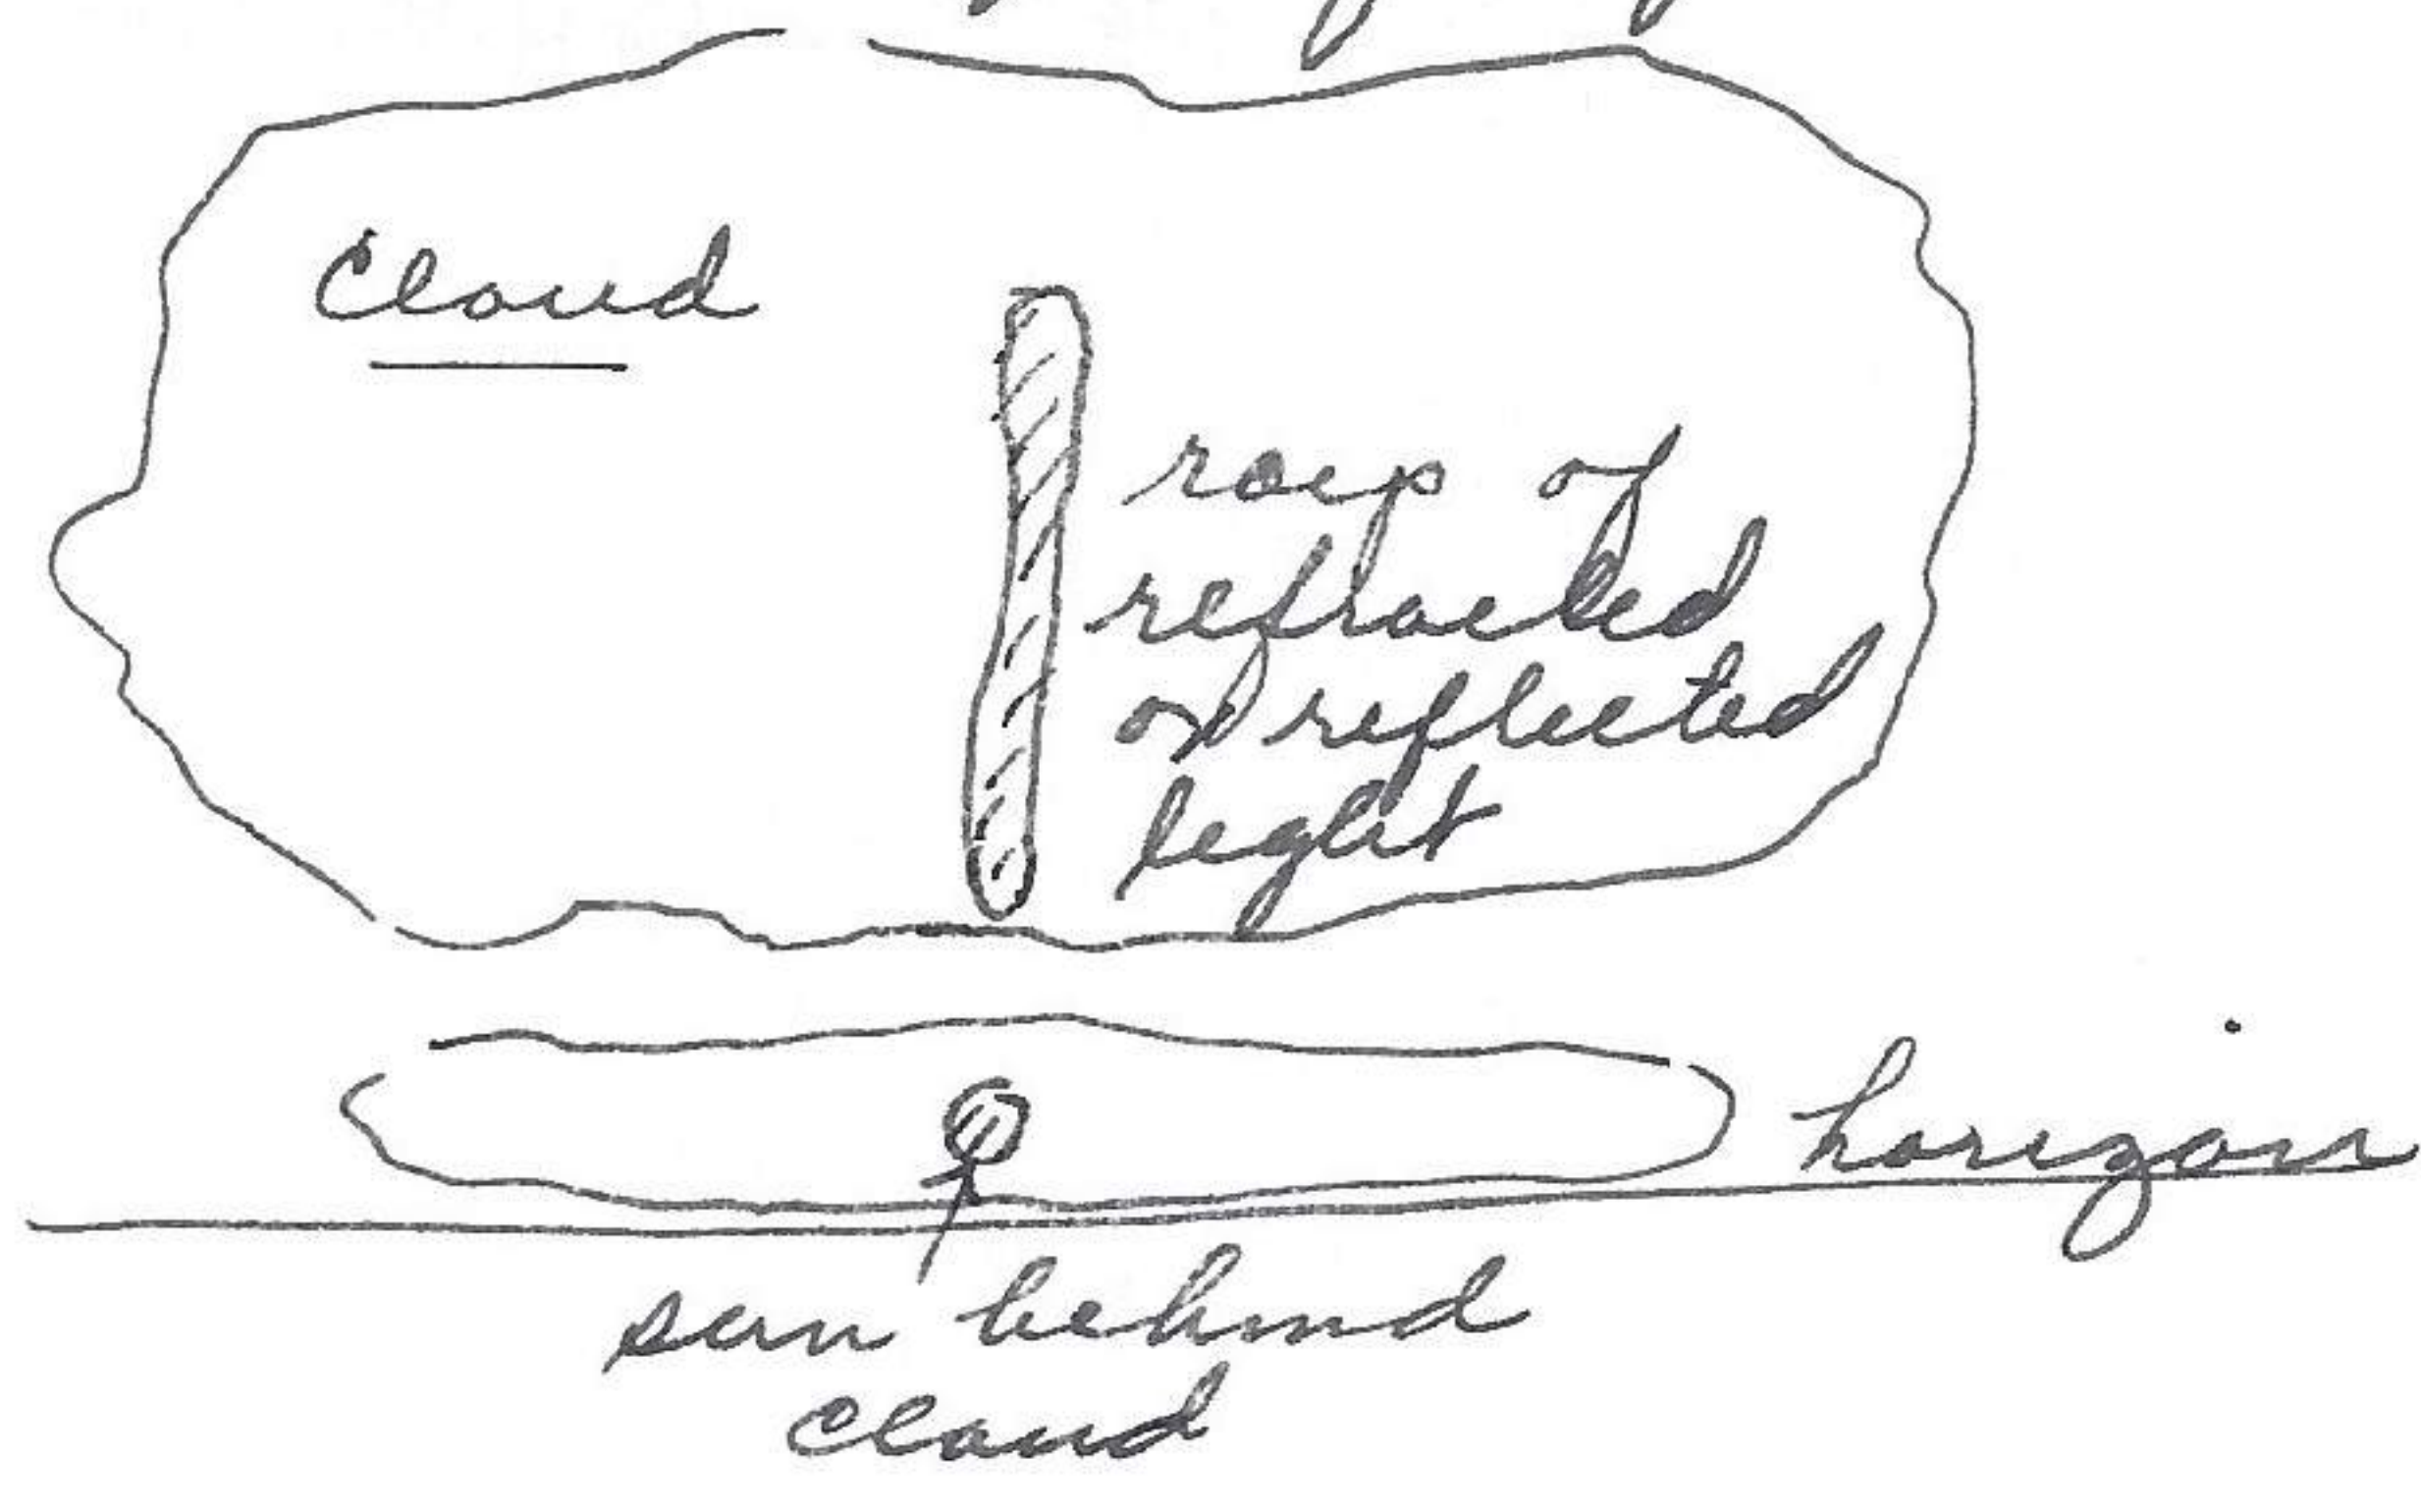 Cloud
of
refracted
or reflected
light
horizon
sun behind
cloud